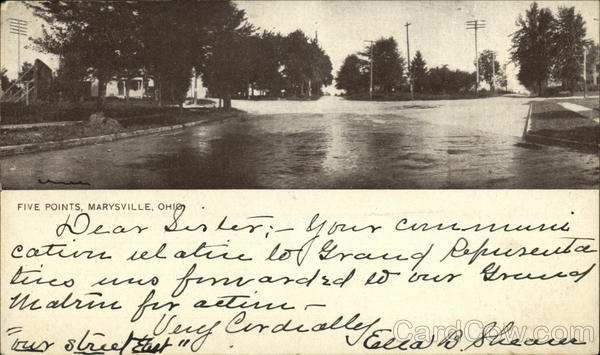 FIVE POINTS, MARYSVILLE, OHIO.
Dear Sister;- Your communi
cation relative to Grand Representa
tives was forwarded to our Grand
Matron for action -
Very Cordially
"our street East" Ella B Shearer
CardCow.com